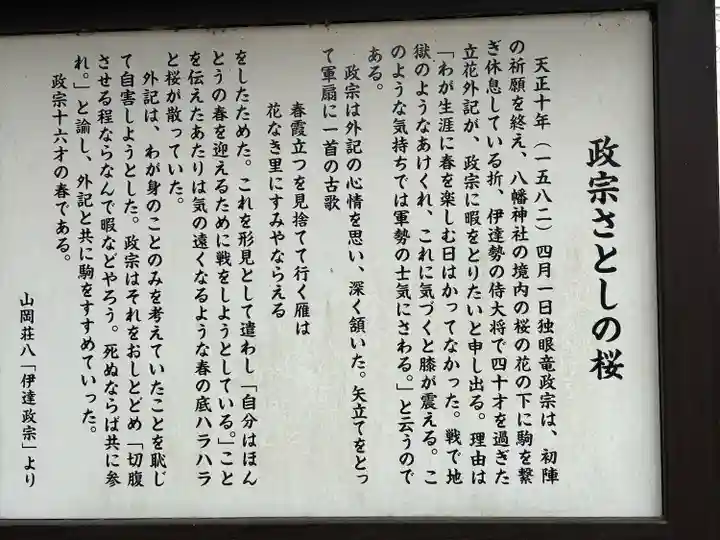 政宗さとしの桜
天正十年（一五八二）四月一日独眼竜政宗は、初陣
の祈願を終え、八幡神社の境内の桜の花の下に駒を繋
ぎ休息している折、伊達勢の侍大将で四十才を過ぎた
立花外記が、政宗に暇をとりたいと申し出る。理由は
「わが生涯に春を楽しむ日はかってなかった。戦で地
獄のようなあけくれ、これに気づくと膝が震える。こ
のような気持ちでは軍勢の士気にさわる。」と云うので
ある。
政宗は外記の心情を思い、深く頷いた。矢立てをとっ
て軍扇に一首の古歌
春霞立つを見捨てて行く雁は
花なき里にすみやならえる
をしたためた。これを形見として遣わし「自分はほん
とうの春を迎えるために戦をしようとしている。」こと
を伝えたあたりは気の遠くなるような春の底ハラハラ
と桜が散っていた。
外記は、わが身のことのみを考えていたことを恥じ
て自害しようとした。政宗はそれをおしとどめ「切腹
させる程ならなんで暇などやろう。死ぬならば共に参
れ。」と諭し、外記と共に駒をすすめていった。
政宗十六才の春である。
山岡荘八「伊達政宗」より